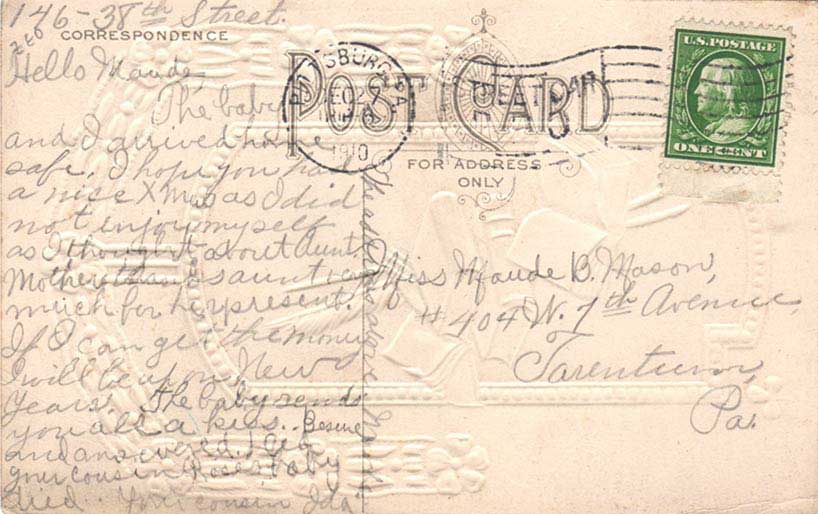 146-38th Street.
CORRESPONDENCE
POST CARD
FOR ADDRESS
ONLY
U.S. POSTAGE
ONE CENT
PITTSBURG, PA.
1910
Hello Maude
The baby
and I arrived home
safe. I hope you had
a nice Xmas as I did
not enjoy myself
as I thought about aunt.
Mother thanks aunt very
much for her present.
If I can get the money
I will be up on New
Years. The baby sends
you all a kiss. Be sure
and answer
cousin Rose's baby
died. Your cousin Ida
Miss Maude B. Mason,
#404 W. 7th Avenue,
Tarentum,
Pa.